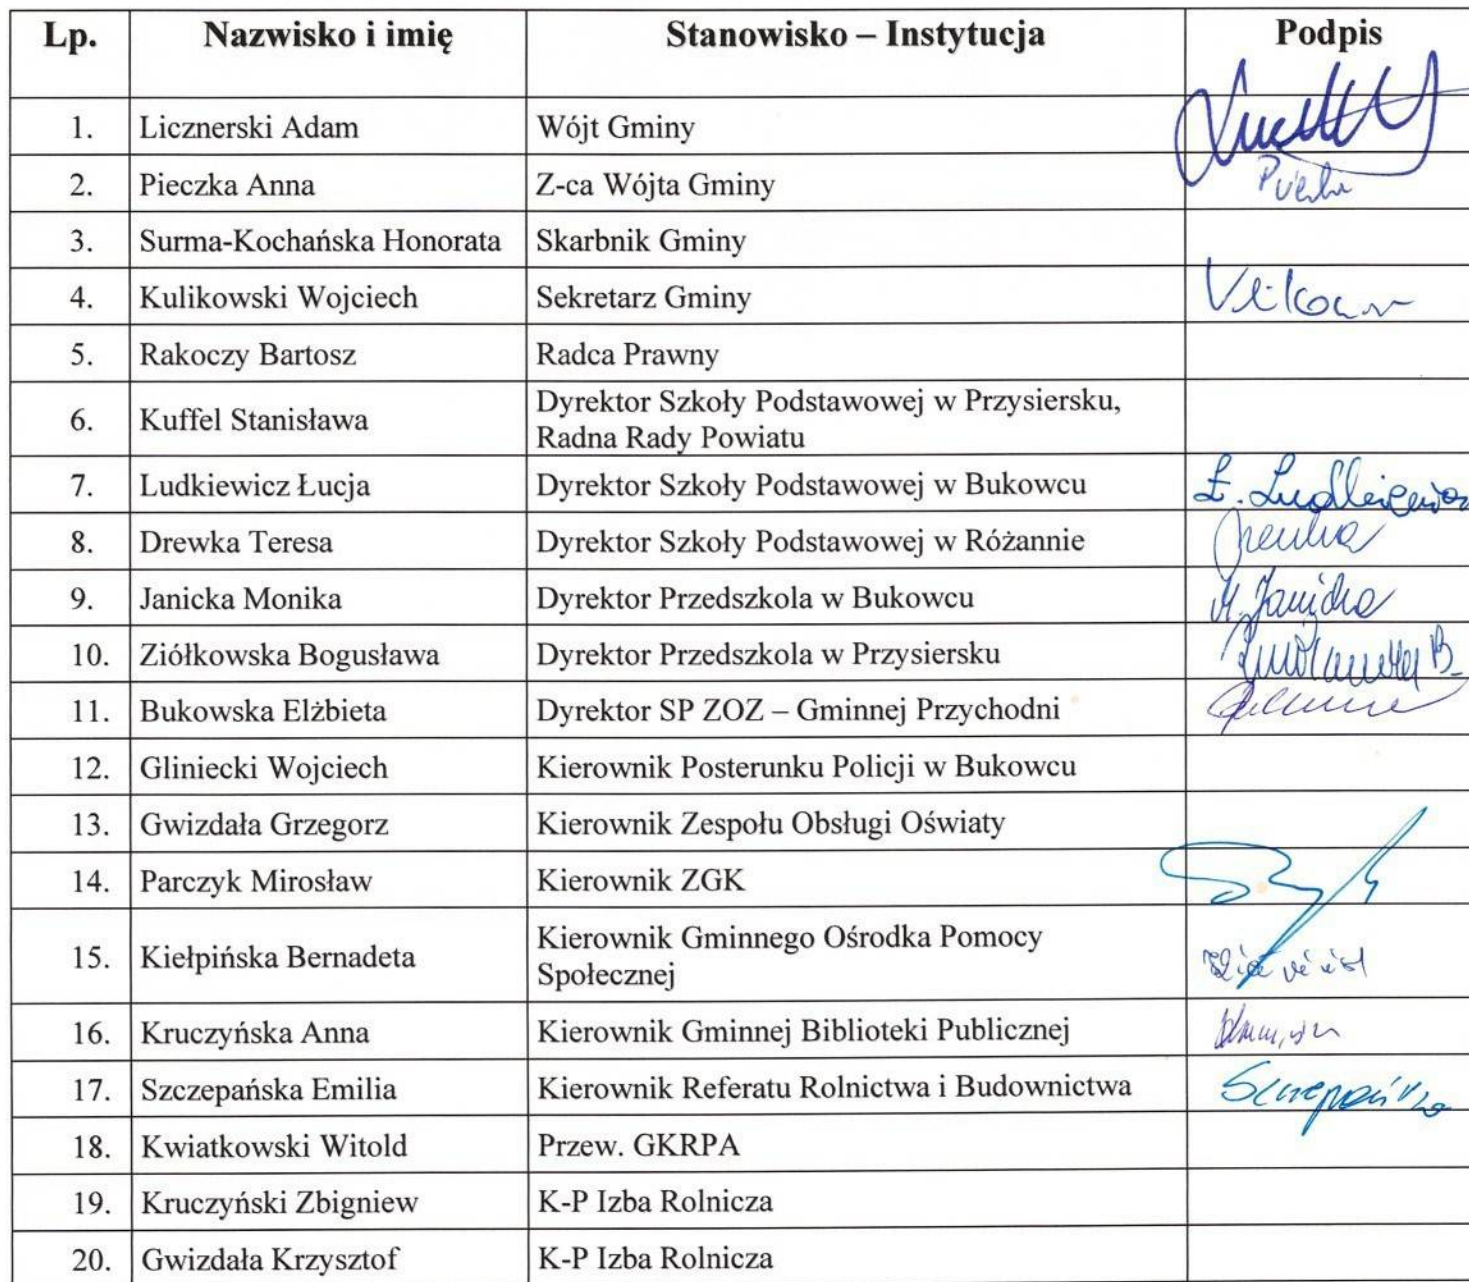 Lp. Nazwisko i imię Stanowisko – Instytucja Podpis
1. Licznerski Adam Wójt Gminy
2. Pieczka Anna Z-ca Wójta Gminy
3. Surma-Kochańska Honorata Skarbnik Gminy
4. Kulikowski Wojciech Sekretarz Gminy
5. Rakoczy Bartosz Radca Prawny
6. Kuffel Stanisława Dyrektor Szkoły Podstawowej w Przysiersku,
Radna Rady Powiatu
7. Ludkiewicz Łucja Dyrektor Szkoły Podstawowej w Bukowcu Ł. Ludkiewicz
8. Drewka Teresa Dyrektor Szkoły Podstawowej w Różannie
9. Janicka Monika Dyrektor Przedszkola w Bukowcu M. Janicka
10. Ziółkowska Bogusława Dyrektor Przedszkola w Przysiersku
11. Bukowska Elżbieta Dyrektor SP ZOZ – Gminnej Przychodni
12. Gliniecki Wojciech Kierownik Posterunku Policji w Bukowcu
13. Gwizdała Grzegorz Kierownik Zespołu Obsługi Oświaty
14. Parczyk Mirosław Kierownik ZGK
15. Kiełpińska Bernadeta Kierownik Gminnego Ośrodka Pomocy
Społecznej
16. Kruczyńska Anna Kierownik Gminnej Biblioteki Publicznej
17. Szczepańska Emilia Kierownik Referatu Rolnictwa i Budownictwa Szczepańska
18. Kwiatkowski Witold Przew. GKRPA
19. Kruczyński Zbigniew K-P Izba Rolnicza
20. Gwizdała Krzysztof K-P Izba Rolnicza